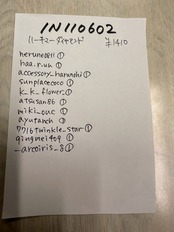 IN110602
ハーキマーダイヤモンド
¥1410
herune0811 ①
haa.r.uu ①
accessory_harunohi ①
sunplacecoco ①
k_k_flower_ ①
atsusan86 ①
miki_ouc ①
ayutanch ①
7716twinkle_star ①
qingmei409 ①
_arcoiris_8 ①